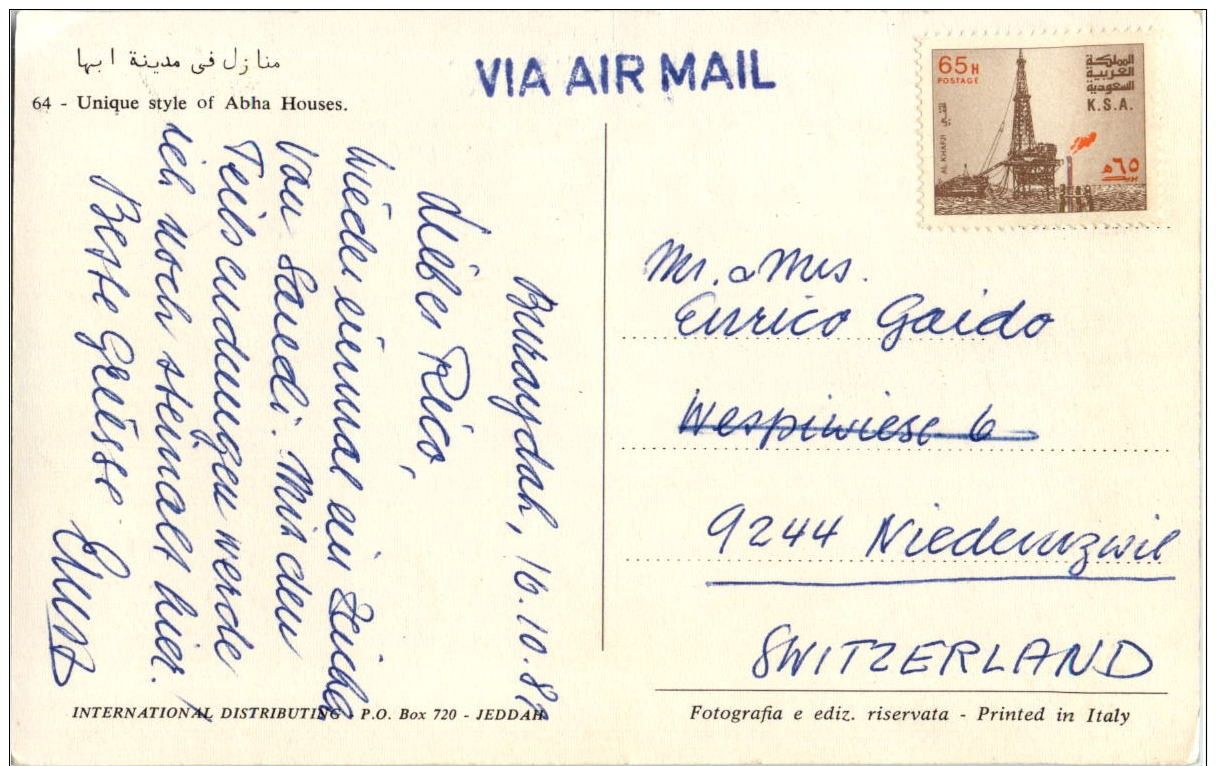 منازل في مدينة ابها
64 - Unique style of Abha Houses.
VIA AIR MAIL
65 H
POSTAGE
المملكة
العربية
السعودية
K.S.A.
AL KHAFJI
الخفجي
٦٥ هـ
بريد
Buraydah, 16.10.81
Lieber Rico,
Wieder einmal ein Zeichen
von Saudi. Mit den
Teilsendungen werde
ich noch steinalt hier!
Beste Grüsse
Ernst
Mr. & Mrs.
Enrico Gaido
Wespiwiese 6
9244 Niederuzwil
SWITZERLAND
INTERNATIONAL DISTRIBUTING - P.O. Box 720 - JEDDAH
Fotografia e ediz. riservata - Printed in Italy